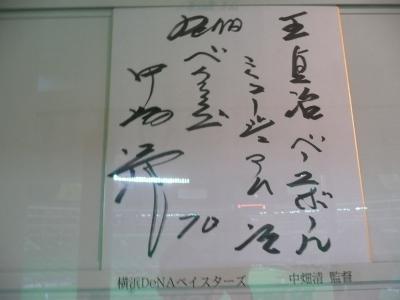 王貞治ベースボール
ミュージアム
中畑清
70
横浜DeNAベイスターズ 中畑清 監督